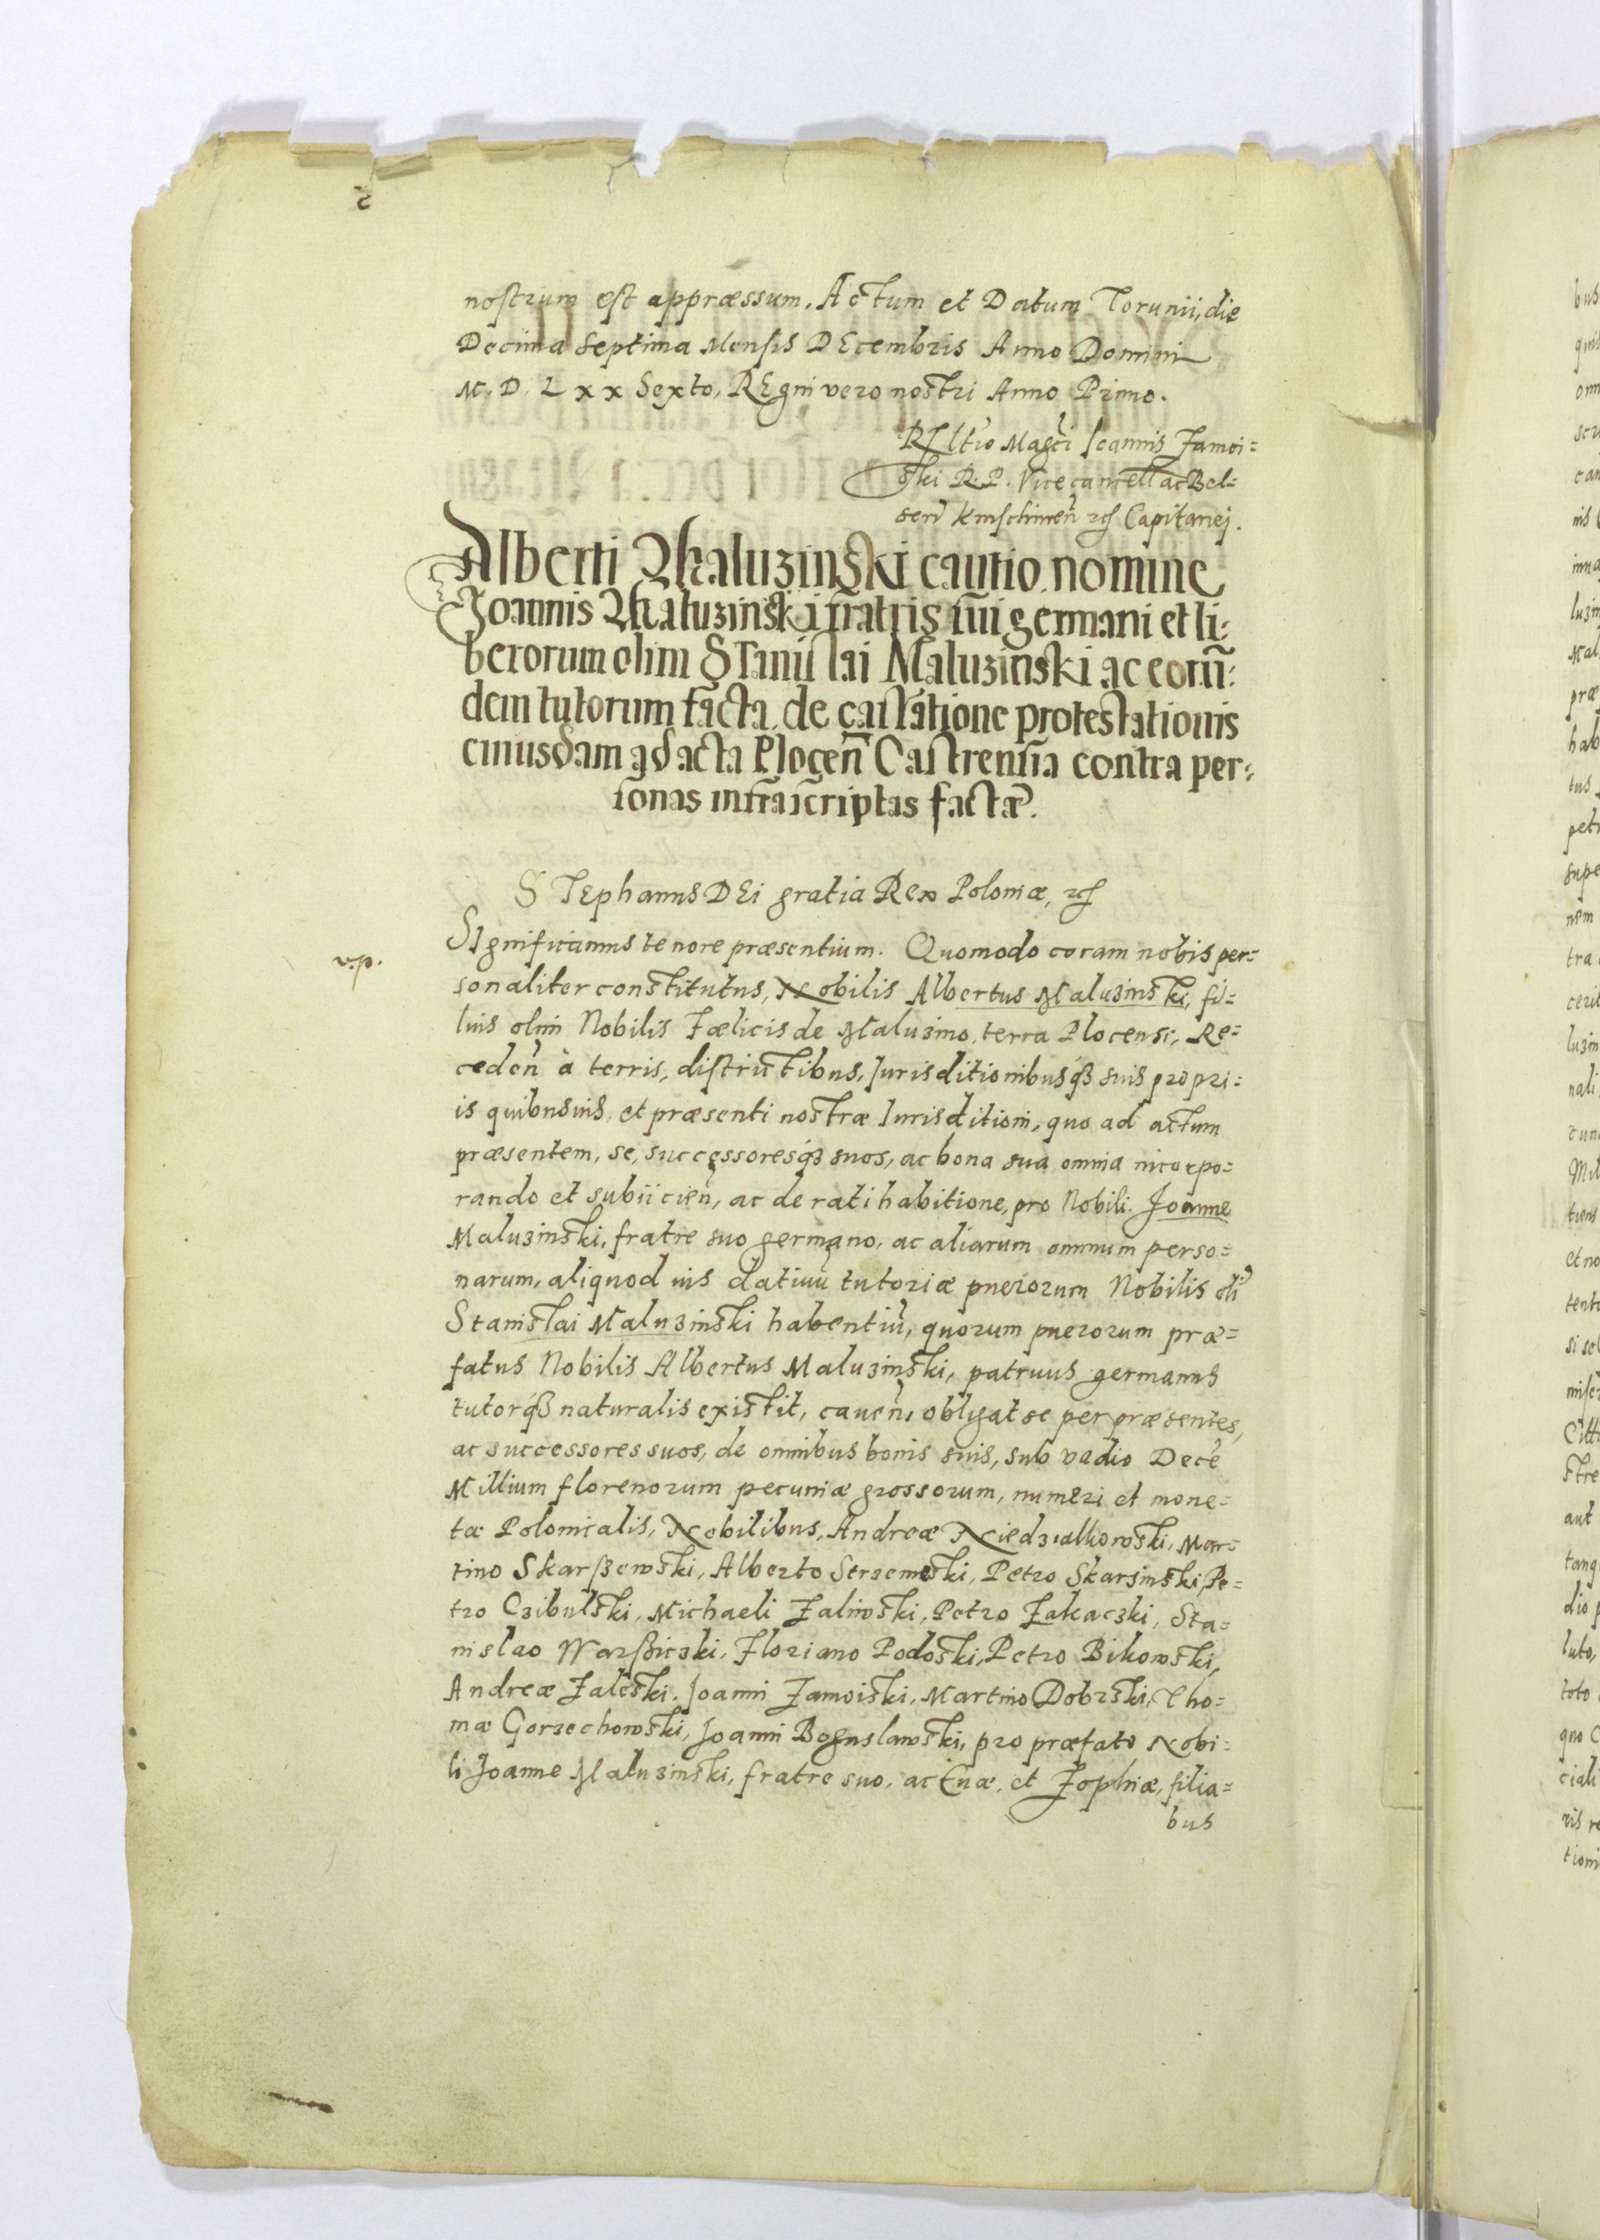 nostrum est appræssum. Actum et Datum Torunii, die
Decima Septima Mensis DEcembris Anno Domini
M. D. Lxx Sexto, REgni vero nostri Anno Primo.
RElt̃io Magc̃i Joannis Zamoi=
ski R. P. Vicecancell̃ ac Bel=
Capitanej.
Alberti Maluzinski cautio nomine
Joannis Maluzinski fr̃atris sui germani et li=
berorum olim STanislai Maluzinski ac eorũ=
dem tutorum facta, de cassatione protestationis
cuiusdam ad acta Plocen̄ Castrensia contra per=
sonas infrascriptas factæ.
STephanus DEi gratia Rex Poloniæ, etc
v.p.
SIgnificamus tenore præsentium. Quomodo coram nobis per=
sonaliter constitutus, Nobilis Albertus Maluzinski, fi=
lius olim Nobilis Fœlicis de Maluzino, terra Plocensi, Re=
ceden̄ à terris, districtibus, Jurisditionibusq́ꝫ suis propri=
is quibusuis, et præsenti nostræ Jurisditioni, quo ad actum
præsentem, se, successoresq́ꝫ suos, ac bona sua omnia incorpo=
rando et subiicien̄, ac de ratihabitione, pro Nobili Joanne
Maluzinski, fratre suo germano, ac aliarum omnium perso=
narum, aliquod ius datiuũ tutoriæ puerorum Nobilis olĩ
Stanislai Maluzinski habentiũ, quorum puerorum præ=
fatus Nobilis Albertus Maluzinski, patruus germanus
tutorq́ꝫ naturalis existit, caven̄, obligat se per præsentes,
ac successores suos, de omnibus bonis suis, sub vadio Decẽ
Millium florenorum pecuniæ grossorum, numeri et mone=
tæ Polonicalis, Nobilibus, Andreæ Niedzialkowski, Mar=
tino Skarßewski, Alberto Serzemeski, Petro Skarsinski, Pe=
tro Czibulski, Michaeli Zaliwski, Petro Zakaczki, Sta=
nislao Warßiczki, Floriano Podoski, Petro Bikowski,
Andreæ Zaleski, Joanni Zamoiski, Martino Dobrski, Tho=
mæ Gorzechowski, Joanni Boguslawski, pro præfato, Nobi=
li Joanne Maluzinski, fratre suo, ac Euæ, et Zophiæ, filia=
bus